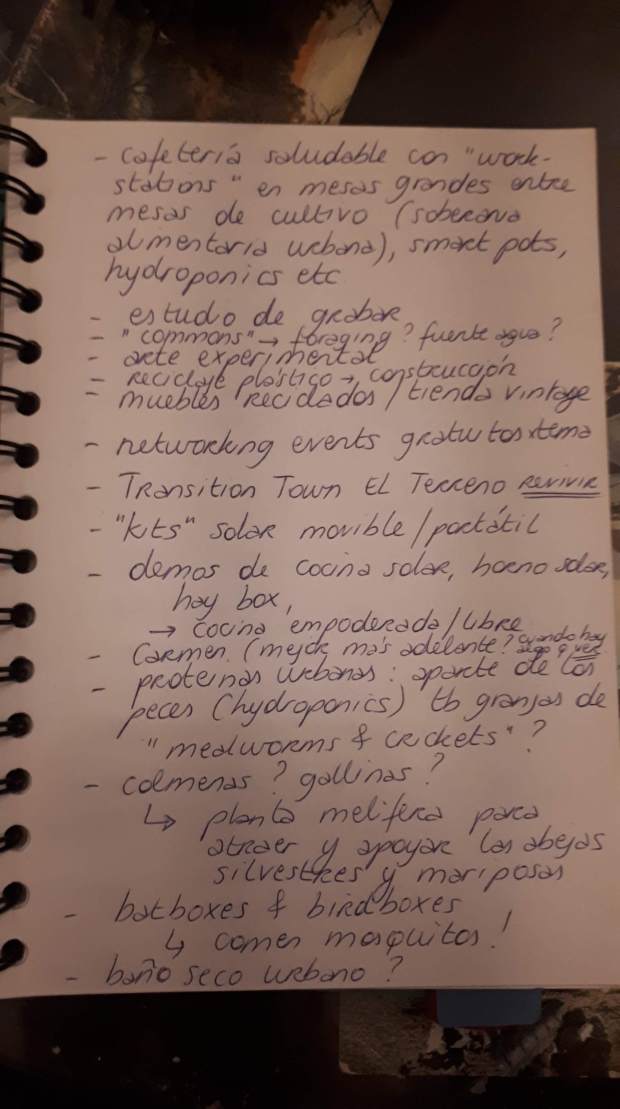 - cafetería saludable con "work-
stations" en mesas grandes entre
mesas de cultivo (soberana
alimentaria urbana), smart pots,
hydroponics etc
- estudio de grabar
- "commons" → foraging? fuente agua?
- arte experimental
- reciclaje plástico → construcción
- muebles reciclados / tienda vintage
- networking events gratuitos xtema
- Transition Town El Terreno REVIVIR
- "kits" solar movible / portátil
- demos de cocina solar, horno solar,
hay box,
→ cocina empoderada / libre
- Carmen. (mejor más adelante? cuando hay algo q ver
- proteinas urbanas: aparte de los
peces (hydroponics) tb granjas de
"mealworms & crickets"?
- colmenas? gallinas?
↳ planta melifera para
atraer y apoyar las abejas
silvestres y mariposas
- batboxes & birdboxes
↳ comen mosquitos!
- baño seco urbano?